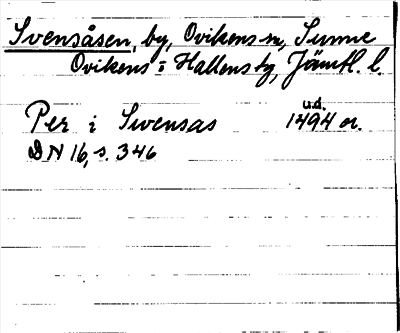 Svensåsen, by, Ovikens sn, Sunne
Ovikens o Hallens tg, Jämtl. l.
u.d.
Per i Swensas 1494 or.
DN 16, s. 346